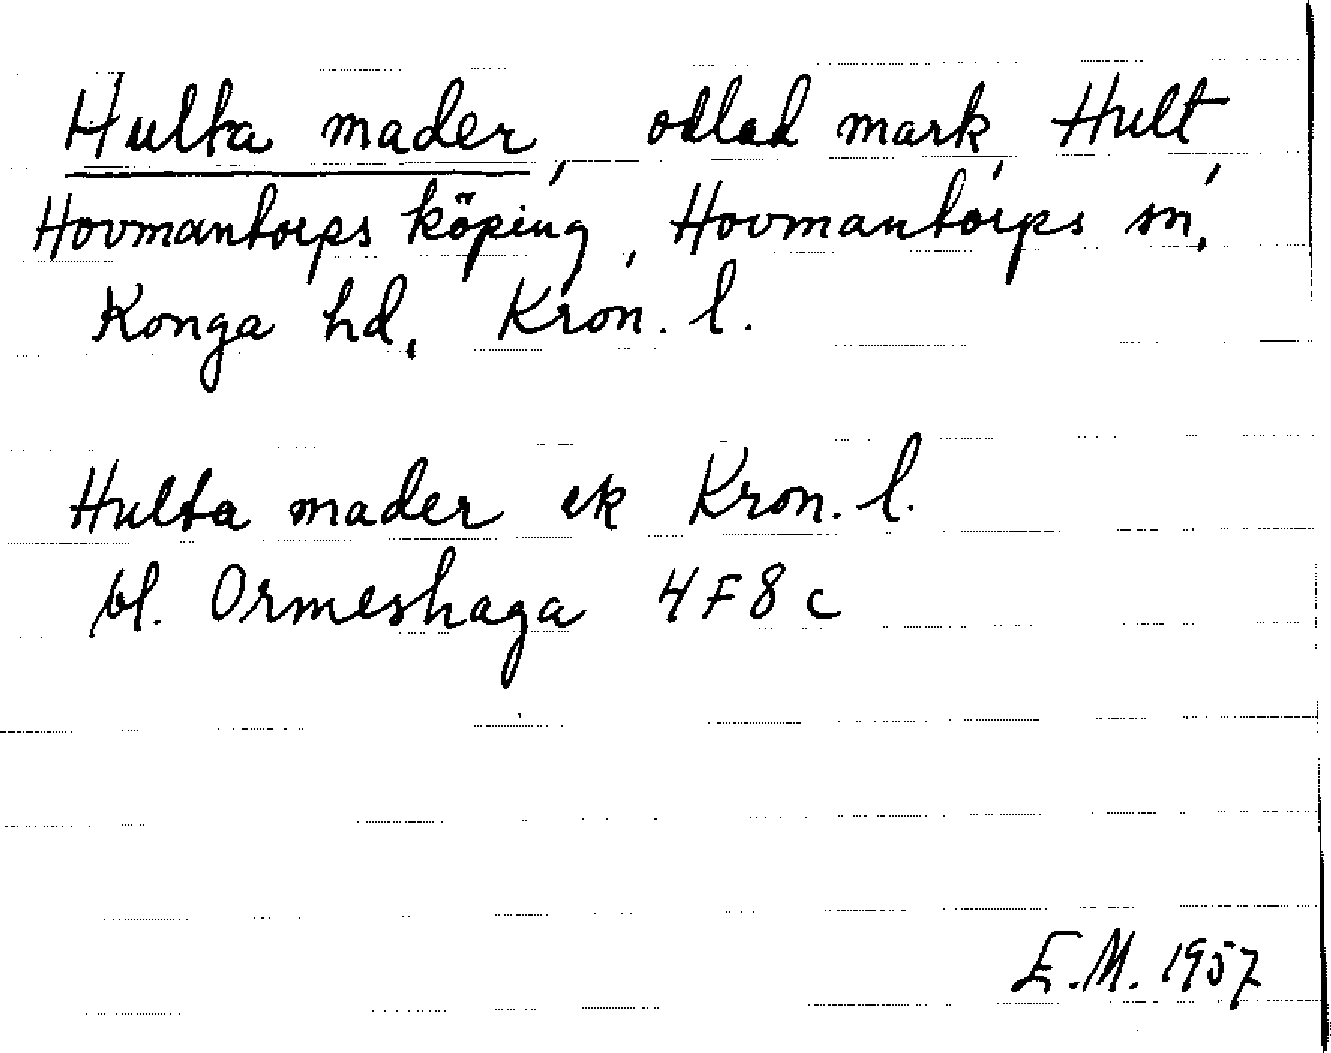 Hulta mader, odlad mark, Hult,
Hovmantorps köping, Hovmantorps sn,
Konga hd, Kron. l.
Hulta mader ek Kron. l.
bl. Ormeshaga 4F8c
E.M. 1957